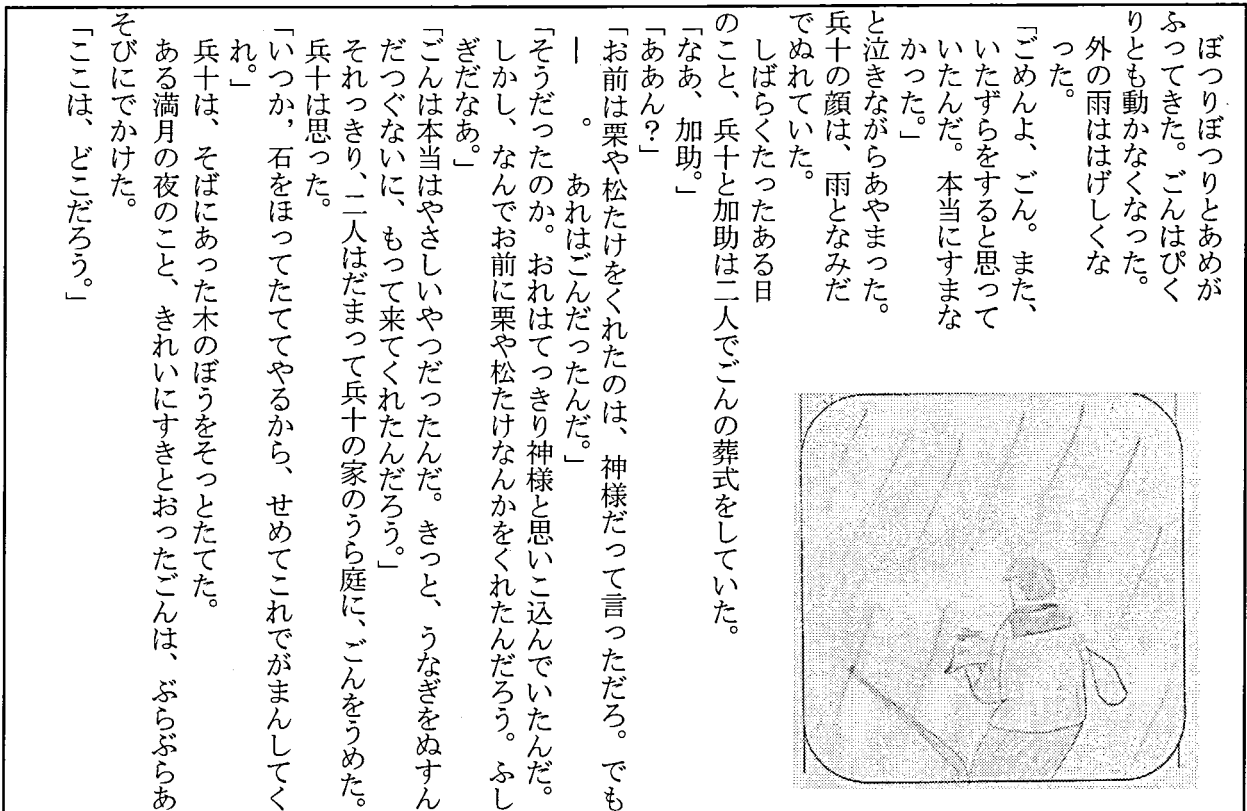 ぼつりぼつりとあめが
ふってきた。ごんはぴく
りとも動かなくなった。
外の雨ははげしくな
った。
「ごめんよ、ごん。また、
いたずらをすると思って
いたんだ。本当にすまな
かった。」
と泣きながらあやまった。
兵十の顔は、雨となみだ
でぬれていた。
しばらくたったある日
のこと、兵十と加助は二人でごんの葬式をしていた。
「なあ、加助。」
「ああん?」
「お前は栗や松たけをくれたのは、神様だって言っただろ。でも
―。あれはごんだったんだ。」
「そうだったのか。おれはてっきり神様と思いこ込んでいたんだ。
しかし、なんでお前に栗や松たけなんかをくれたんだろう。ふし
ぎだなあ。」
「ごんは本当はやさしいやつだったんだ。きっと、うなぎをぬすん
だつぐないに、もって来てくれたんだろう。」
それっきり、二人はだまって兵十の家のうら庭に、ごんをうめた。
兵十は思った。
「いつか,石をほってたててやるから、せめてこれでがまんしてく
れ。」
兵十は、そばにあった木のぼうをそっとたてた。
ある満月の夜のこと、きれいにすきとおったごんは、ぶらぶらあ
そびにでかけた。
「ここは、どこだろう。」